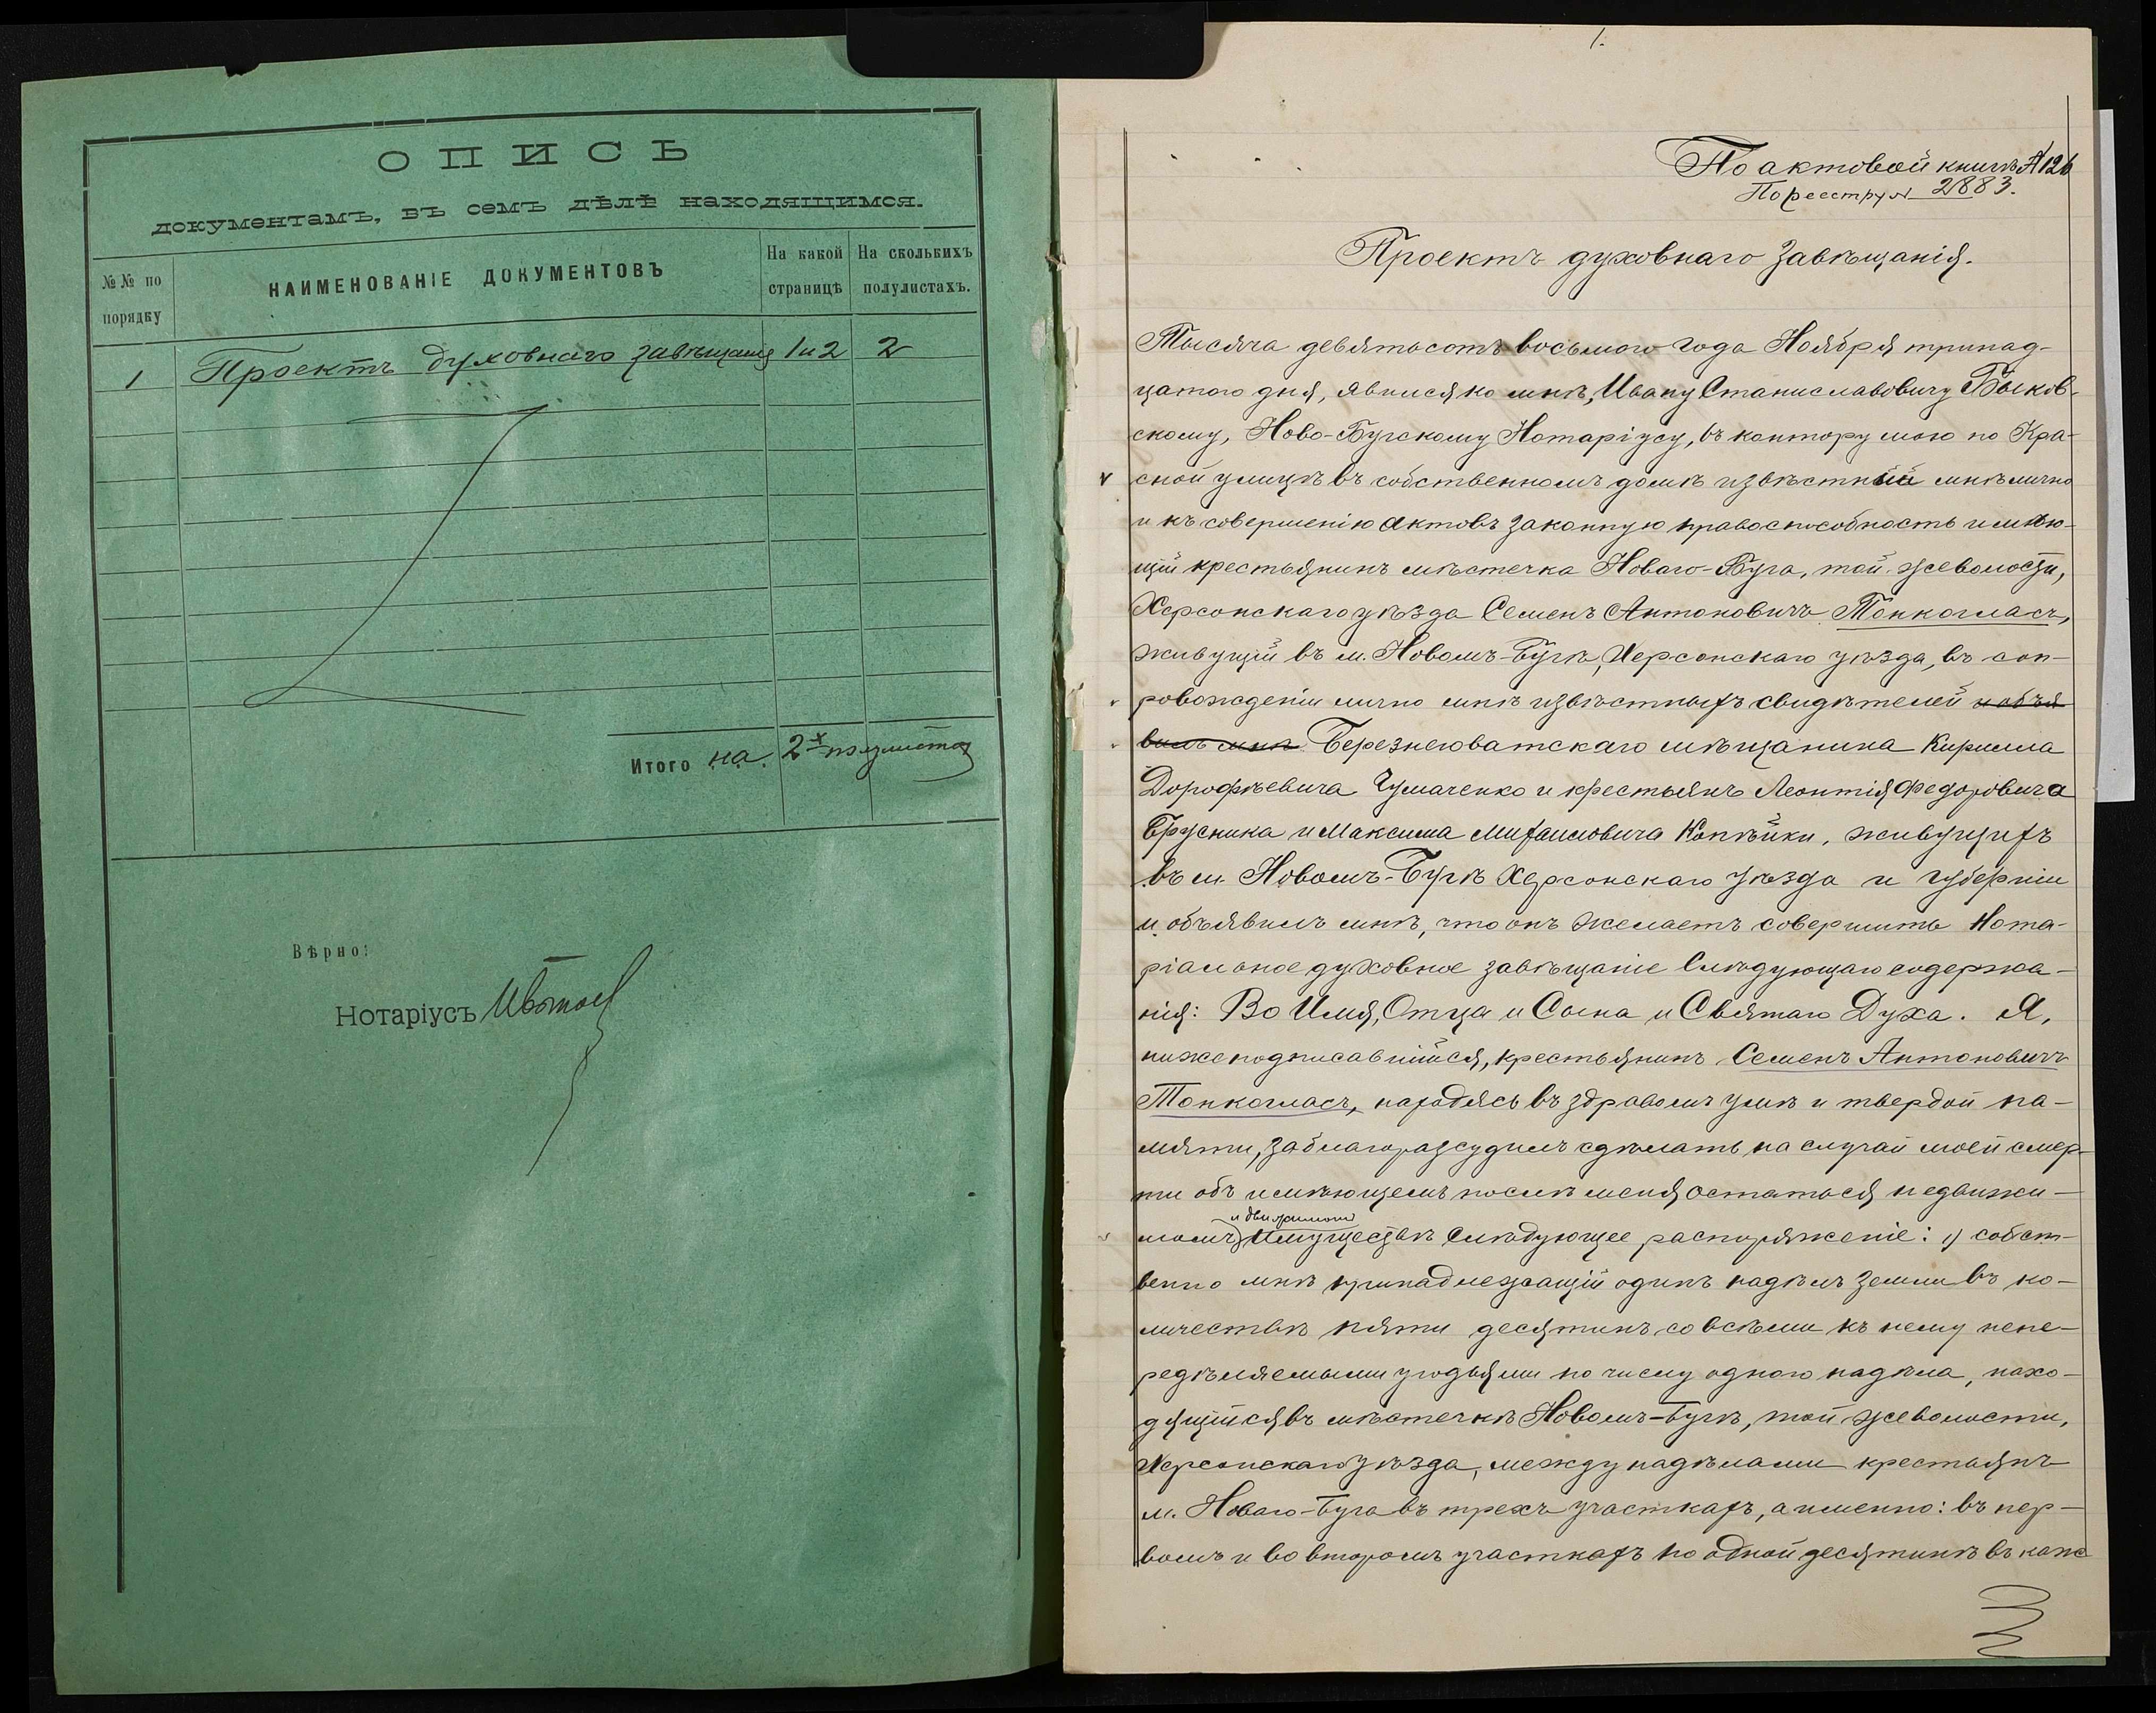 ОПИСЬ
документамъ, въ семъ дѣлѣ находящимся.
№№ по порядку
НАИМЕНОВАНІЕ ДОКУМЕНТОВЪ
На какой страницѣ
На сколькихъ полулистахъ.
1 Проектъ духовнаго завѣщанія 1 и 2 2
Итого на 2х полулистахъ
Вѣрно:
Нотаріусъ
1.
По актовой книгѣ № 126
По реестру № 2883.
Проектъ духовнаго завѣщанія.
Тысяча девятьсотъ восьмого года Ноября тринад-
цатого дня, явился ко мнѣ, Ивану Станиславовичу Быков-
скому, Ново-Бугскому Нотаріусу, въ контору мою по Кра-
сной улицѣ въ собственномъ домѣ извѣстный мнѣ лично
и къ совершенію актовъ законную правоспособность имѣю-
щій крестьянинъ мѣстечка Новаго-Буга, той же волости,
Херсонскаго уѣзда Семенъ Антоновичъ Тонкогласъ,
живущій въ м. Новомъ-Бугѣ, Херсонскаго уѣзда, въ соп-
ровожденіи лично мнѣ извѣстныхъ свидѣтелей и объя
вилъ мнѣ Березнеговатскаго мѣщанина Кирилла
Дорофѣевича Чумаченко и крестьянъ Леонтія Федоровича
Брусника и Максима Михаиловича Копѣйки, живущихъ
въ м. Новомъ-Бугѣ Херсонскаго уѣзда и губерніи
и объявилъ мнѣ, что онъ желаетъ совершить Нота-
ріальное духовное завѣщаніе слѣдующаго содержа-
нія: Во Имя, Отца и Сына и Святаго Духа. Я,
нижеподписавшійся, крестьянинъ Семенъ Антоновичъ
Тонкогласъ, находясь въ здравомъ умѣ и твердой па-
мяти, заблагоразсудилъ сдѣлать на случай моей смер-
ти объ имѣющемъ послѣ меня остаться недвижи-
и движимомъ
момъ имуществѣ слѣдующее распоряженіе: 1) собст-
венно мнѣ принадлежащій одинъ надѣлъ земли въ ко-
личествѣ пяти десятинъ со всѣми къ нему непе-
редѣляемыми угодьями по числу одного надѣла, нахо-
дящійся въ мѣстечкѣ Новомъ-Бугѣ, той же волости,
Херсонскаго уѣзда, между надѣлами крестьянъ
м. Новаго-Буга въ трехъ участкахъ, а именно: въ пер-
вомъ и во второмъ участкахъ по одной десятинѣ въ каж